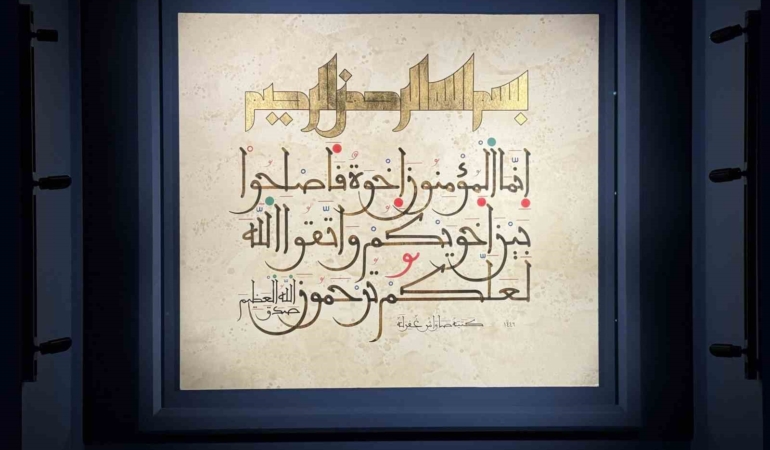 بسم الله الرحمن الرحيم
إنّما المؤمنون إخوة فأصلحوا
بين أخويكم واتّقوا اللّه
لعلّكم ترحمون
صدق اللّه العظيم
كتبه غفر له ١٤٤٦